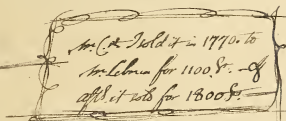 Mr. C.st I sold it in 1770. to
Mr. Lebrun for 1100 &. — &
aft.d. it sold for 1800 &.